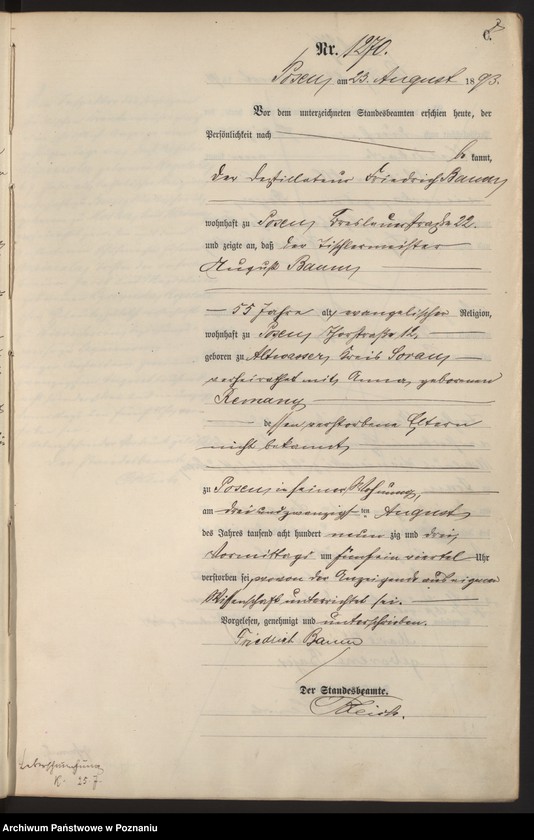 C.
Nr. 1270.
Posen, am 23. August 1893.
Vor dem unterzeichneten Standesbeamten erschien heute, der
Persönlichkeit nach
be kannt,
der Destillateur Friedrich Baum,
wohnhaft zu Posen, Breslauerstraße 22.
und zeigte an, daß der Tischlermeister
August Baum,
55 Jahre alt, evangelischer Religion,
wohnhaft zu Posen, Thorstraße 12,
geboren zu Altwasser, Kreis Sorau,
verheirathet mit Anna, geborenen
Remany
dessen verstorbene Eltern
nicht bekannt,
zu Posen, in seiner Wohnung,
am drei und zwanzigsten August
des Jahres tausend acht hundert neunzig und drei,
Vormittags um fünf ein viertel Uhr
verstorben sei, wovon der Anzeigende aus eigener
Wissenschaft unterrichtet sei.
Vorgelesen, genehmigt und unterschrieben.
Friedrich Baum
Der Standesbeamte.
Archiwum Państwowe w Poznaniu